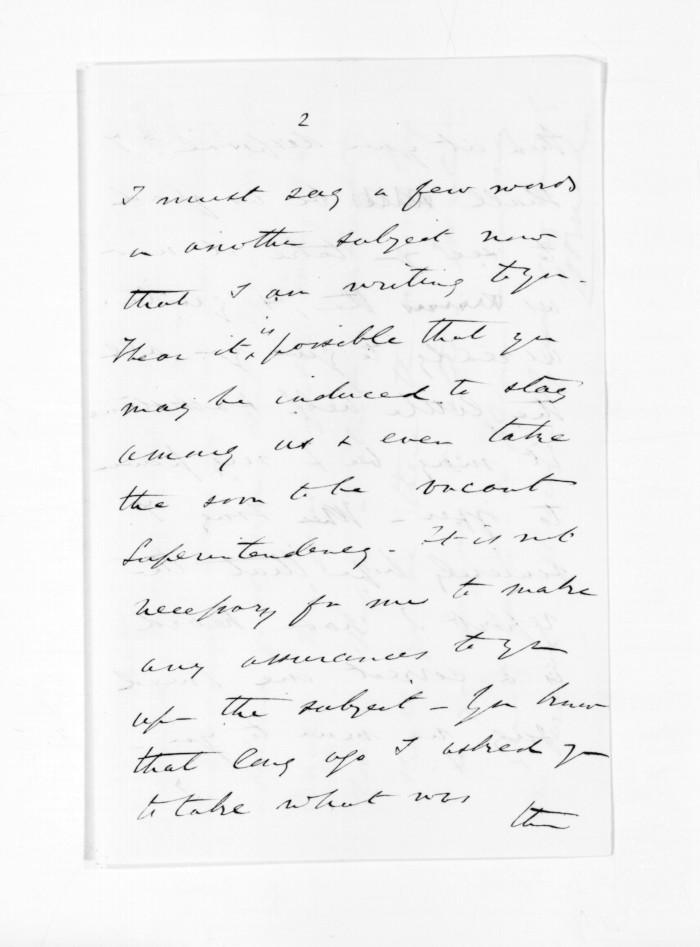 2
I must say a few words
on another subject now
that I am writing to you.
I hear it is possible that you
may be induced to stay
among us & even take
the soon to be vacant
Superintendency. It is not
necessary for me to make
any assurances to you
upon the subject - You know
that long ago I asked you
to take what was
then